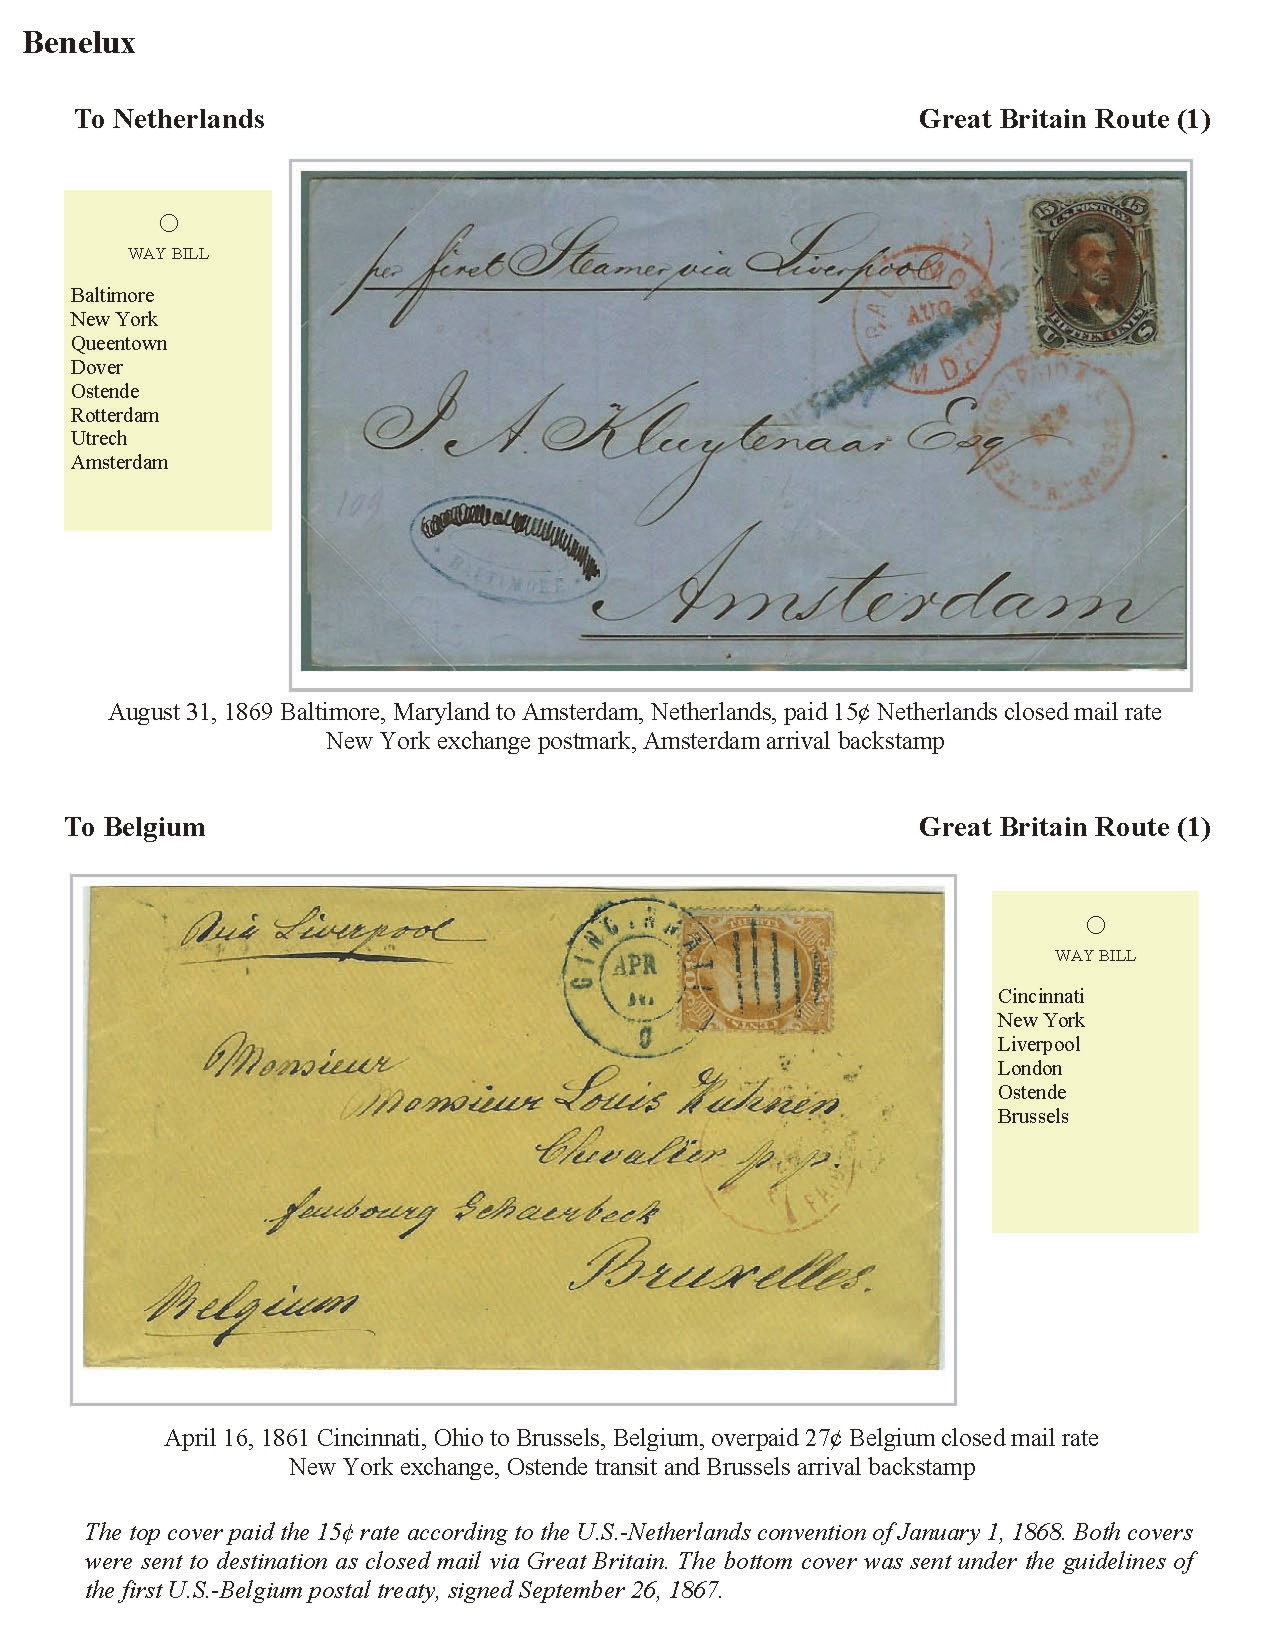 Benelux
To Netherlands
Great Britain Route (1)
WAY BILL
Baltimore
New York
Queentown
Dover
Ostende
Rotterdam
Utrech
Amsterdam
per first Steamer via Liverpool
15 U.S. POSTAGE 15
FIFTEEN CENTS
U S
BALTIMORE
AUG
MD.
J. A. Kluytenaar Esq
BALTIMORE
Amsterdam
August 31, 1869 Baltimore, Maryland to Amsterdam, Netherlands, paid 15¢ Netherlands closed mail rate
New York exchange postmark, Amsterdam arrival backstamp
To Belgium
Great Britain Route (1)
Via Liverpool
CINCINNATI
APR
16
Monsieur
Monsieur Louis Kuhnen
Chevalier p.p.
faubourg Schaerbeck
Bruxelles.
Belgium
WAY BILL
Cincinnati
New York
Liverpool
London
Ostende
Brussels
April 16, 1861 Cincinnati, Ohio to Brussels, Belgium, overpaid 27¢ Belgium closed mail rate
New York exchange, Ostende transit and Brussels arrival backstamp
The top cover paid the 15¢ rate according to the U.S.-Netherlands convention of January 1, 1868. Both covers
were sent to destination as closed mail via Great Britain. The bottom cover was sent under the guidelines of
the first U.S.-Belgium postal treaty, signed September 26, 1867.